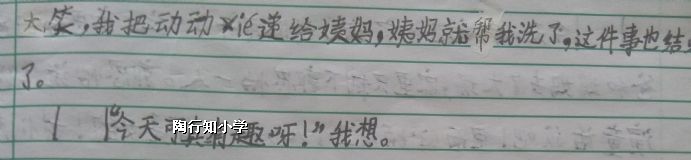 大笑,我把动动xié递给姨妈,姨妈就帮我洗了,这件事也结
了。
“今天可真有趣呀!”我想。
陶行知小学